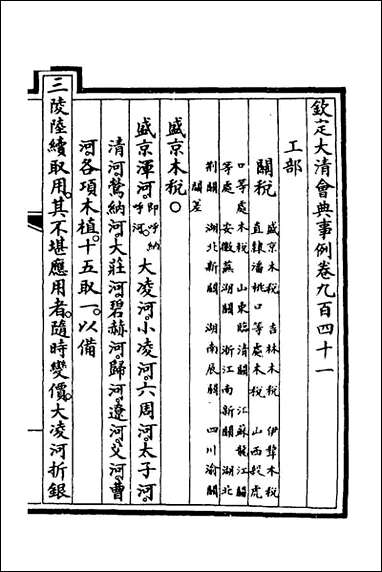 欽定大清會典事例卷九百四十一
工部
關稅
盛京木稅 吉林木稅 伊犂木稅
直隸潘桃口等處木稅 山西殺虎
口等處木稅 山東臨清關 江蘇龍江關
等處 安徽蕪湖關 浙江南新關 湖北
荆關 湖北新關 湖南辰關 四川渝關
關差
盛京木稅○
盛京渾河。即呼納呼河。大凌河。小凌河。六周河。太子河。
清河。鶩納河。大莊河。碧赫河。歸河。遼河。父河。曹
河。各項木植。十五取一。以備
三陵陸續取用。其不堪應用者。隨時變價。大凌河折銀